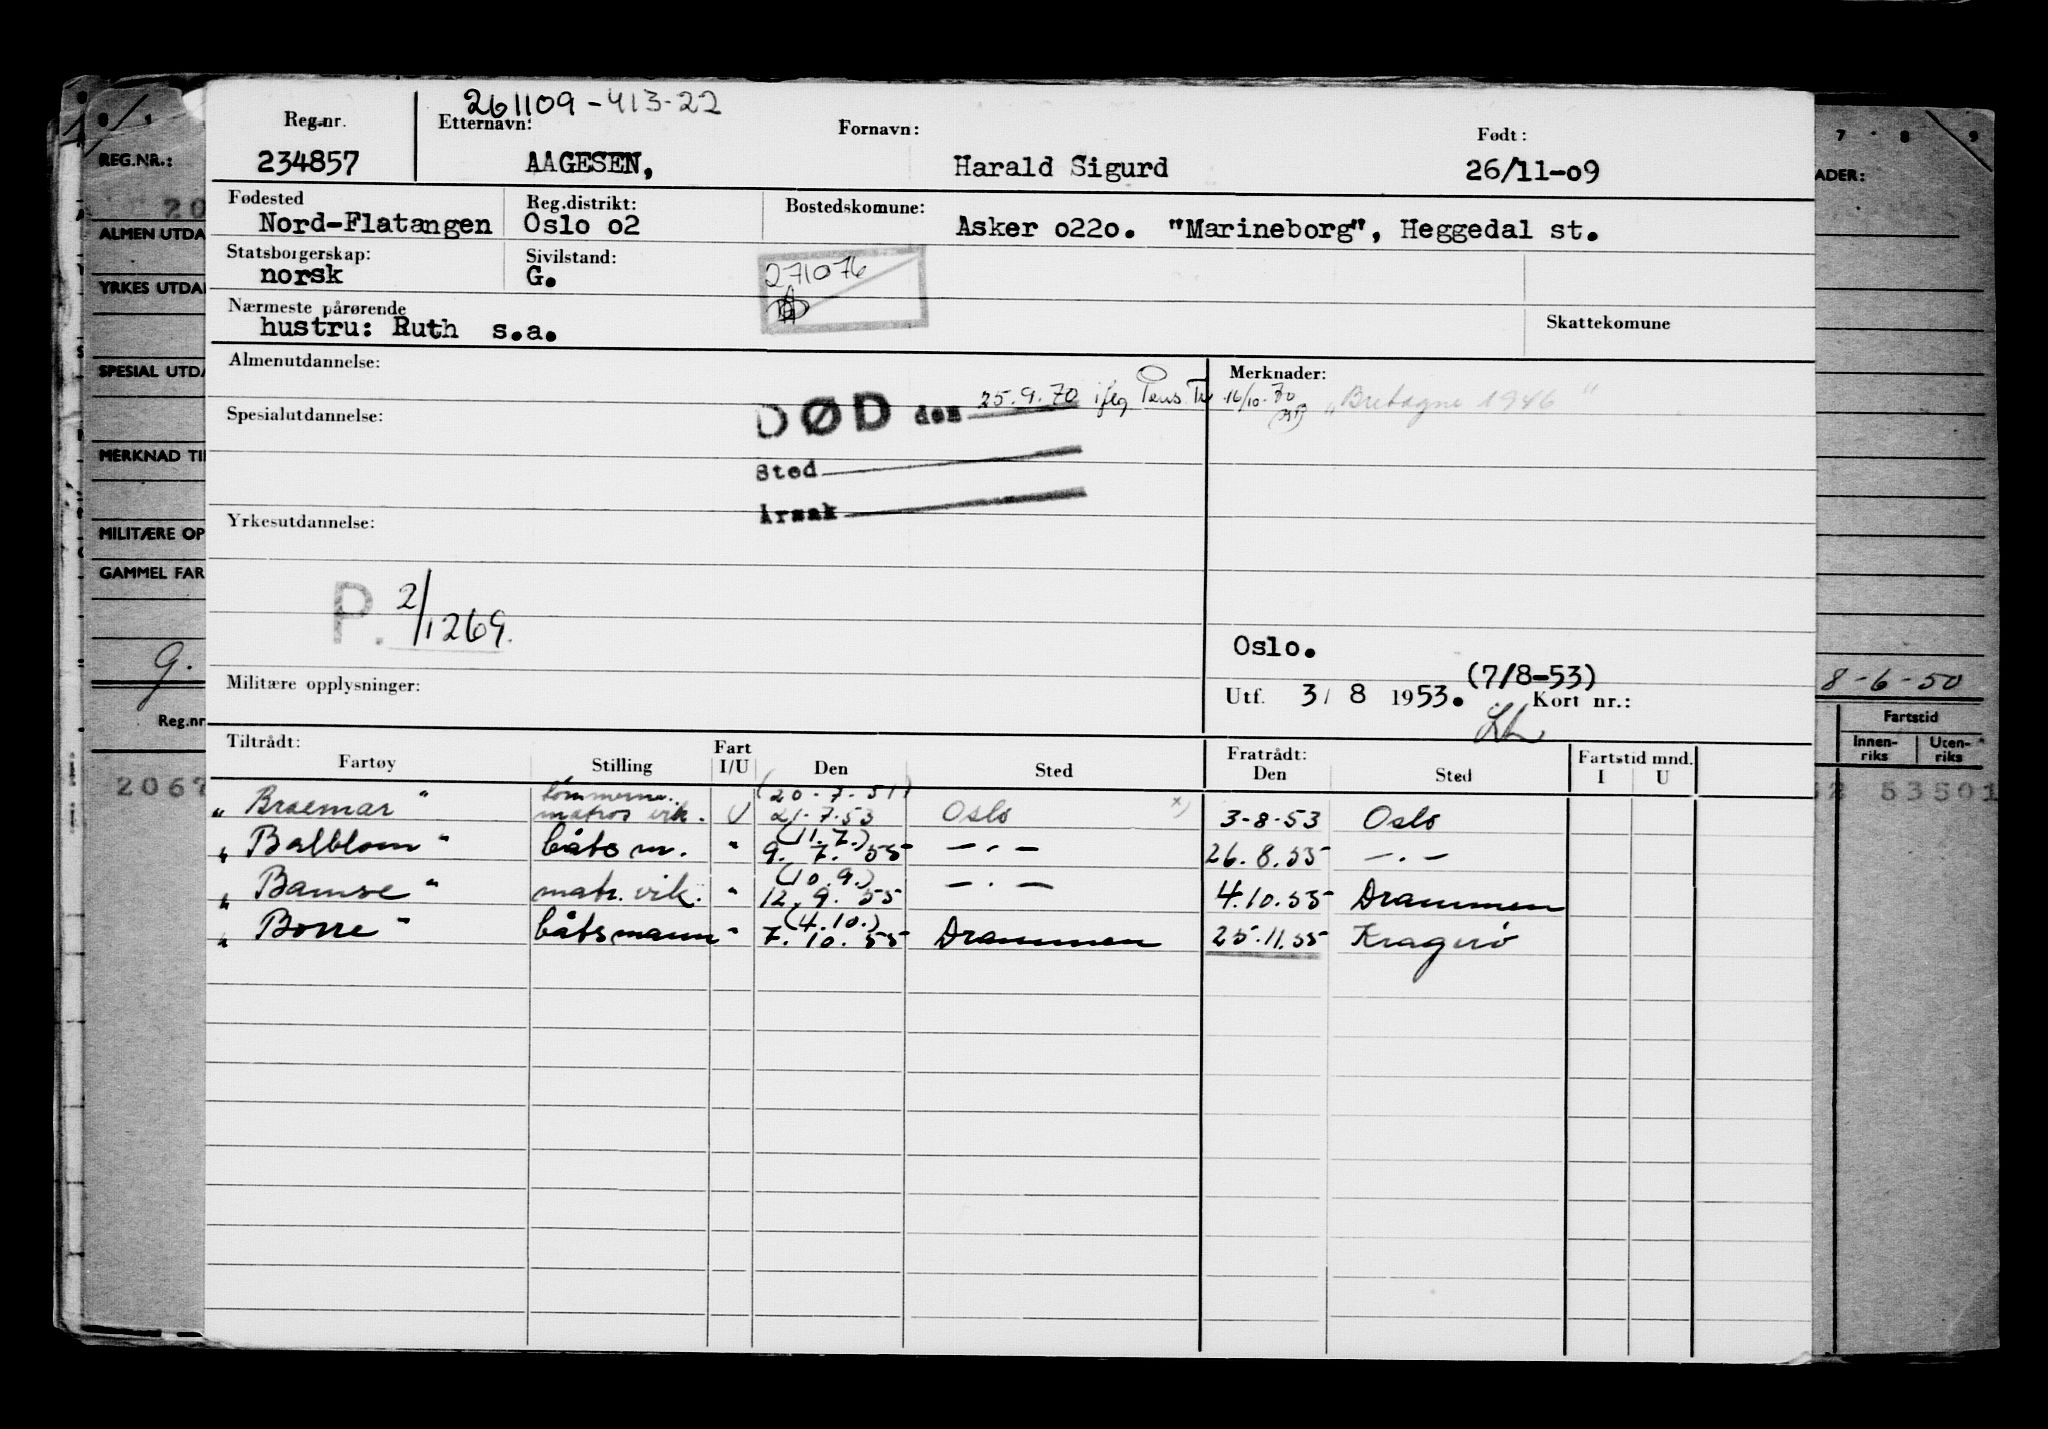 261109-413-22
Reg.nr. Etternavn: Fornavn: Født:
234857 AAGESEN, Harald Sigurd 26/11-09
Fødested Reg.distrikt: Bostedskomune:
Nord-Flatangen Oslo o2 Asker o22o. "Marineborg", Heggedal st.
Statsborgerskap: Sivilstand:
norsk G. 271076
Nærmeste pårørende Skattekomune
hustru: Ruth s.a.
Almenutdannelse: Merknader:
DØD den 25.9.70 iflg 16/10-70 "Bretagne 1946"
Spesialutdannelse:
Sted
Årsak
Yrkesutdannelse:
P. 2/1269.
Oslo.
(7/8-53)
Militære opplysninger: Utf. 3/8 1953. Kort nr.:
Tiltrådt: Fart Fratrådt: Fartstid mnd.
Fartøy Stilling I/U Den Sted Den Sted I U
(20-7-51)
"Braemar" matros vik. U 21-7-53 Oslo x) 3-8-53 Oslo
(11.7.)
"Balblom" båtsm. " 9. 7. 55 —.— 26.8.55 —.—
(10.9.)
"Bamse" matr. vik. " 12.9. 55 —.— 4.10.55 Drammen
(4.10.)
"Borre" båtsmann " 7. 10. 55 Drammen 25.11.55 Kragerø
REG.NR.:
20
ALMEN UTDA
YRKES UTDA
SPESIAL UTDA
MERKNAD TI
MILITÆRE OP
GAMMEL FAR
g.
Reg.nr
2067
7 8 9
ADER:
8-6-50
Fartstid
Innenriks Utenriks
53501